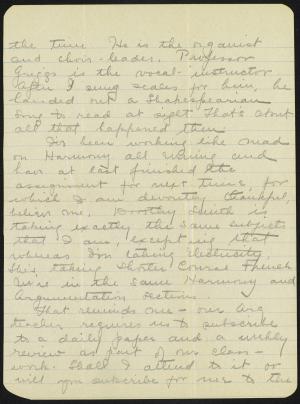 the time. He is the organist
and choir-leader. Professor
Griggs is the vocal-instructor
After I sung scales for him, he
handed out a Shakespearian
song to read at sight. That's about
all that happened then.
I've been working like mad
on Harmony all evening and
have at last finished the
assignment for next time, for
which I am devoutly thankful,
believe me. Dorothy Smith is
taking exactly the same subjects
that I am, excepting that
whereas I'm taking Electricity,
She's taking Shorter Course French
We're in the same Harmony and
Argumentation sections.
That reminds one - our Arg
teacher requires us to subscribe
to a daily paper and a weekly
review as part of our class-
work. Shall I attend to it or
will you subscribe for me to the